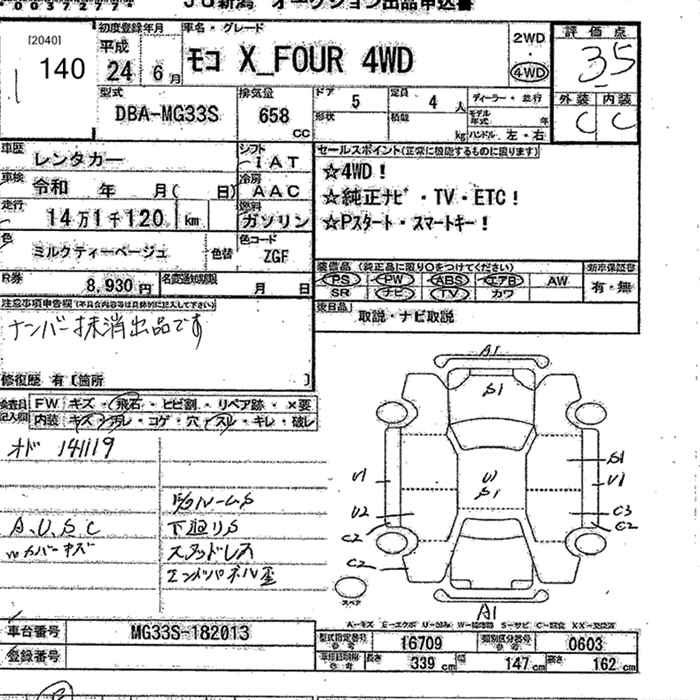 00372774 JU新潟 オークション出品申込書
[2040]
140
初度登録年月
平成
24年 6月
車名・グレード
モコ X_FOUR 4WD
2WD
・
4WD
評価点
3.5
外装 内装
C C
型式
DBA-MG33S
排気量
658 CC
ドア 5
定員 4人
形状
積載 kg
ディーラー・並行
モデル年式 年
ハンドル 左・右
車歴 レンタカー
シフト IAT
車検 令和 年 月( 日)
冷房 AAC
走行 14万1千120 km
燃料 ガソリン
色 ミルクティーベージュ
色替
色コード ZGF
R券 8,930円
名変通知期限 月 日
セールスポイント(正常に機能するものに限ります)
☆4WD!
☆純正ナビ・TV・ETC!
☆Pスタート・スマートキー!
装備品(純正品に限り○をつけてください)
PS PW ABS エアB AW
SR ナビ TV カワ
新車保証書
有・無
後日品
取説・ナビ取説
注意事項申告欄
ナンバー抹消出品です
修復歴 有 [箇所 ]
検査員記入欄
FW キズ・飛石・ヒビ割・リペア跡・×要
内装 キズ・汚レ・コゲ・穴・スレ・キレ・破レ
オド 141119
A,U,S,C
Wカバーキズ
下廻りS
スタッドレス
A1
S1
W
S1
U1
U2
C2
C2
S1
U1
C3
C2
A1
スペア
A-キズ E-エクボ U-凹み W-補修跡 S-サビ C-腐食 XX-交換済
車台番号 MG33S-182013
登録番号
型式指定番号 参考 16709
類別区分番号 参考 0603
車検証明細 参考 長さ 339cm 幅 147cm 高さ 162cm